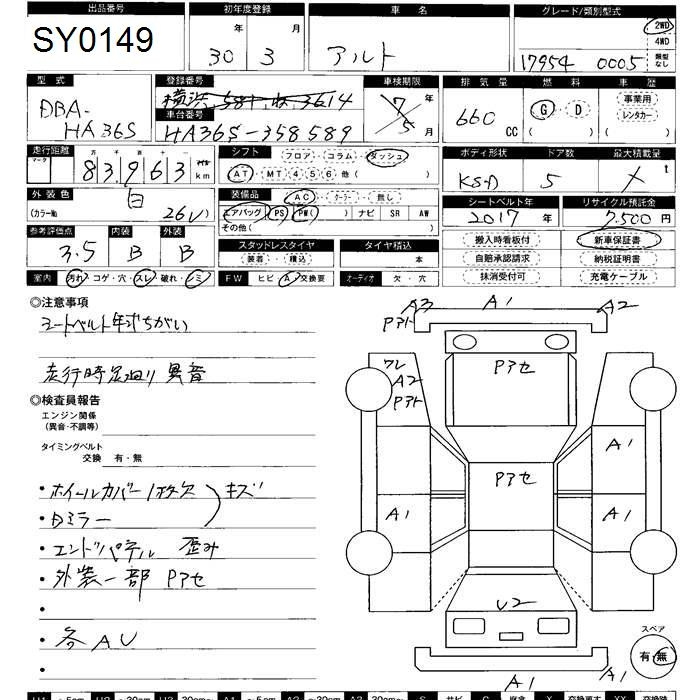 出品番号 初年度登録 車名 グレード/類別型式
SY0149 30年 3月 アルト 17954 0005 2WD
4WD
類型なし
型式 登録番号 車検期限 排気量 燃料 車歴
DBA-HA36S 横浜 581 3614 7年 5月 660cc G・D ( ) 事業用 レンタカー ( )
車台番号
HA36S-358589
走行距離 シフト フロア・コラム・ダッシュ ボディ形状 ドア数 最大積載量
マーク 万 千 百 十 一
83963 マイル km AT・MT 4 5 6 他( ) KSD 5 t
外装色 装備品 AC・クーラー・無し シートベルト年 リサイクル預託金
(カラーNo 白 26U) エアバッグ PS PW( ) ナビ SR AW 2017年 7,500円
その他( )
参考評価点 内装 外装 スタッドレスタイヤ タイヤ積込 搬入時看板付 新車保証書
3.5 B B 装着・積込 本 自賠承認請求 納税証明書
室内 汚れ・コゲ・穴・スレ・破れ・シミ FW ヒビ・A・交換要 オーディオ 欠・穴 抹消受付可 充電ケーブル
○注意事項
シートベルト年式ちがい
走行時足廻り異音
○検査員報告
エンジン関係
(異音・不調等)
タイミングベルト
交換 有・無
・ホイールカバー1枚欠 キズ
・Dミラー
・エンドパネル 歪み
・外装一部 Pアセ
・
・各AU
・
A3 A1 A2
Pアト
ワレ
A2
Pアト
Pアセ
A1
Pアセ
A1 A1
U2
スペア
有・無
A1 A1